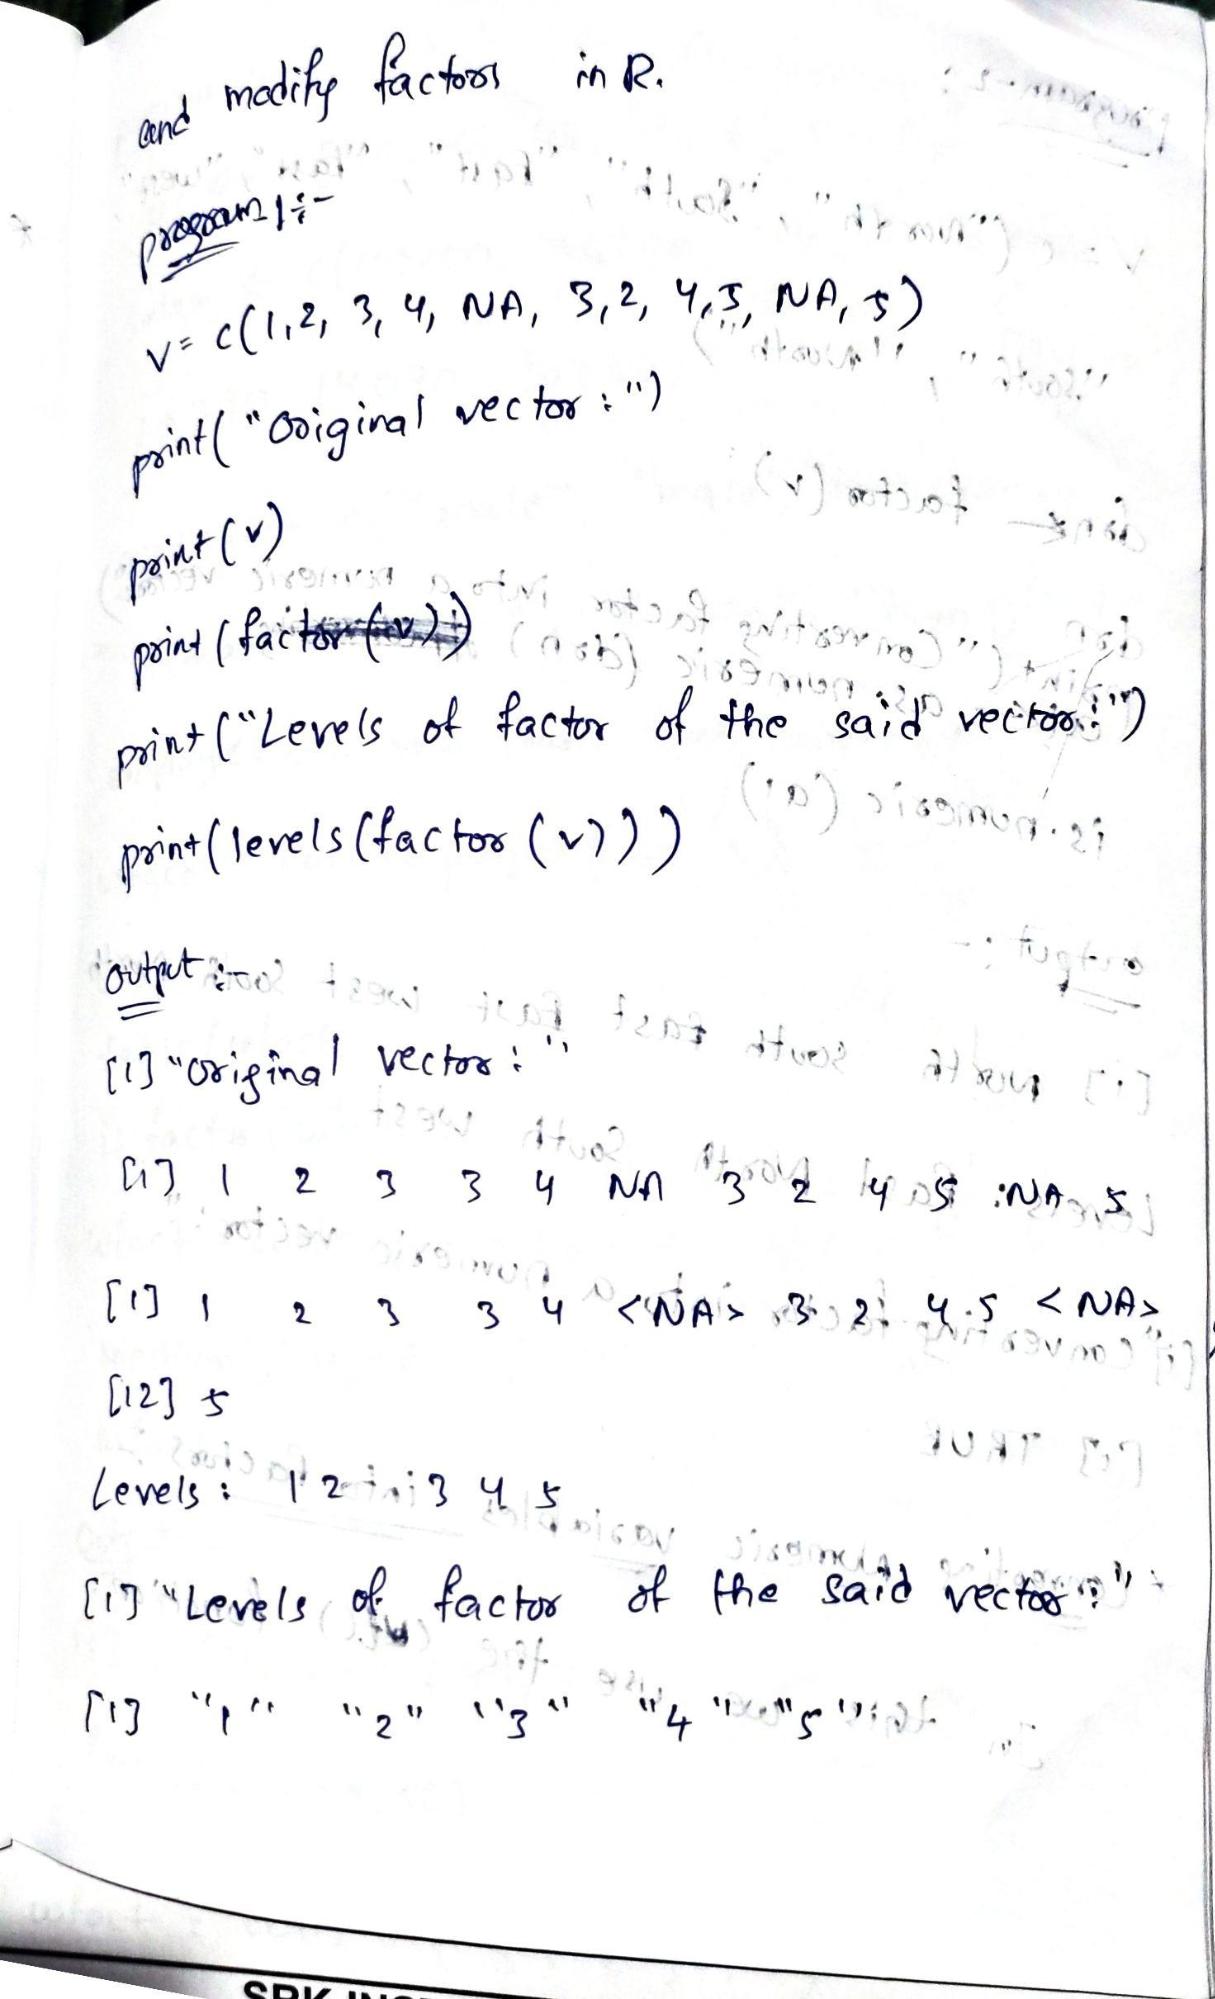 and modify factors in R.
program 1:-
v = c(1,2, 3, 4, NA, 3,2, 4,5, NA, 5)
print("Original vector:")
print(v)
print(factor(v))
print("Levels of factor of the said vector:")
print(levels(factor(v)))
output:-
[1] "Original vector:"
[1] 1 2 3 3 4 NA 3 2 4 5 NA 5
[1] 1 2 3 3 4 <NA> 3 2 4 5 <NA>
[12] 5
Levels: 1 2 3 4 5
[1] "Levels of factor of the said vector:"
[1] "1" "2" "3" "4" "5"